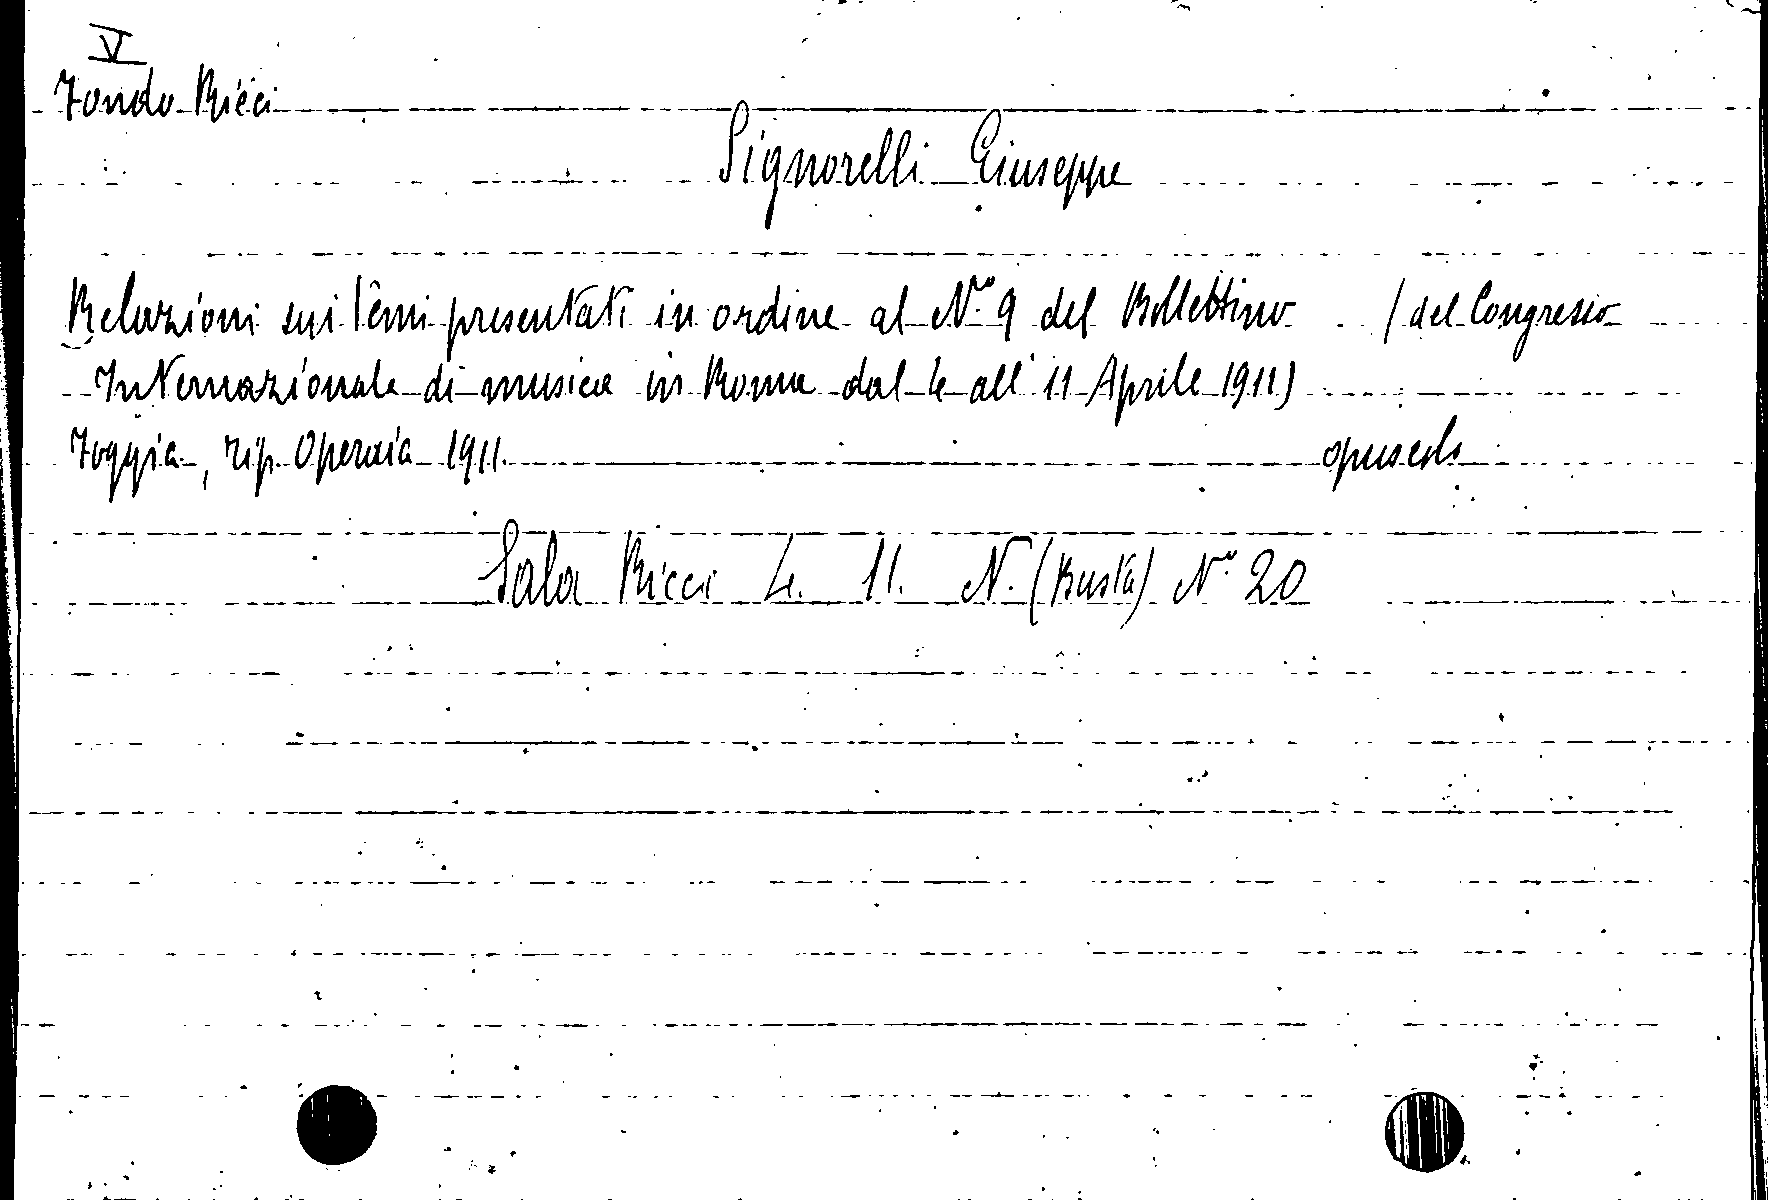 V
Fondo Ricci
Signorelli Giuseppe
Relazioni sui temi presentati in ordine al N.o 9 del Bollettino (del Congresso
Internazionale di musica in Roma dal 4 all' 11 Aprile 1911)
Foggia, tip. Operaia 1911. opuscolo
Sala Ricci 4. 11. N. (Busta) No 20